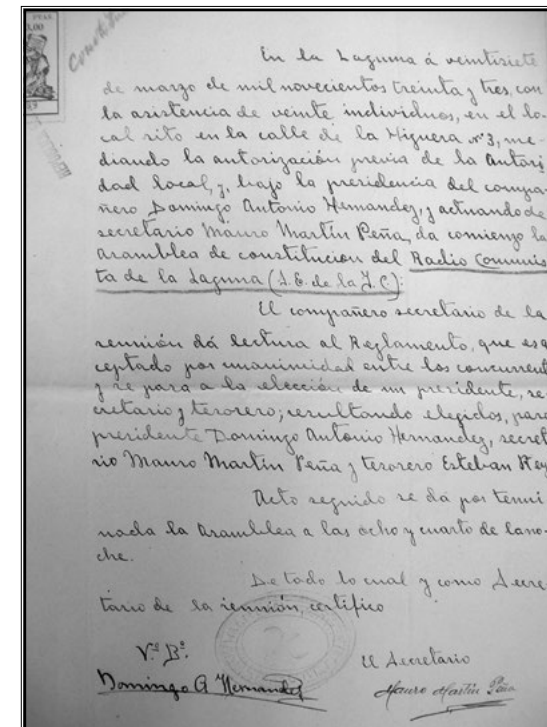 PTAS.
3,00
En la Laguna á veintisiete
de marzo de mil novecientos treinta y tres, con
la asistencia de veinte individuos, en el lo-
cal sito en la calle de la Higuera nº 3, me-
diando la autorización previa de la autori
dad local, y, bajo la presidencia del compa-
ñero Domingo Antonio Hernandez, y actuando de
secretario Mauro Martín Peña, da comienzo la
asamblea de constitucion del Radio Comunis
ta de la Laguna (S. E. de la I. C.):
El compañero secretario de la
reunión dá lectura al Reglamento, que es a
ceptado por unanimidad entre los concurrent
y se pasa a la elección de un presidente, se
cretario y tesorero; resultando elegidos, para
presidente Domingo Antonio Hernandez, secret
rio Mauro Martín Peña y tesorero Esteban Rey
Acto seguido se dá por termi
nada la asamblea a las ocho y cuarto de la no-
che.
De todo lo cual y como Secre
tario de la reunión, certifico
Vº Bº.
El Secretario
Domingo A Hernandez
Mauro Martín Peña